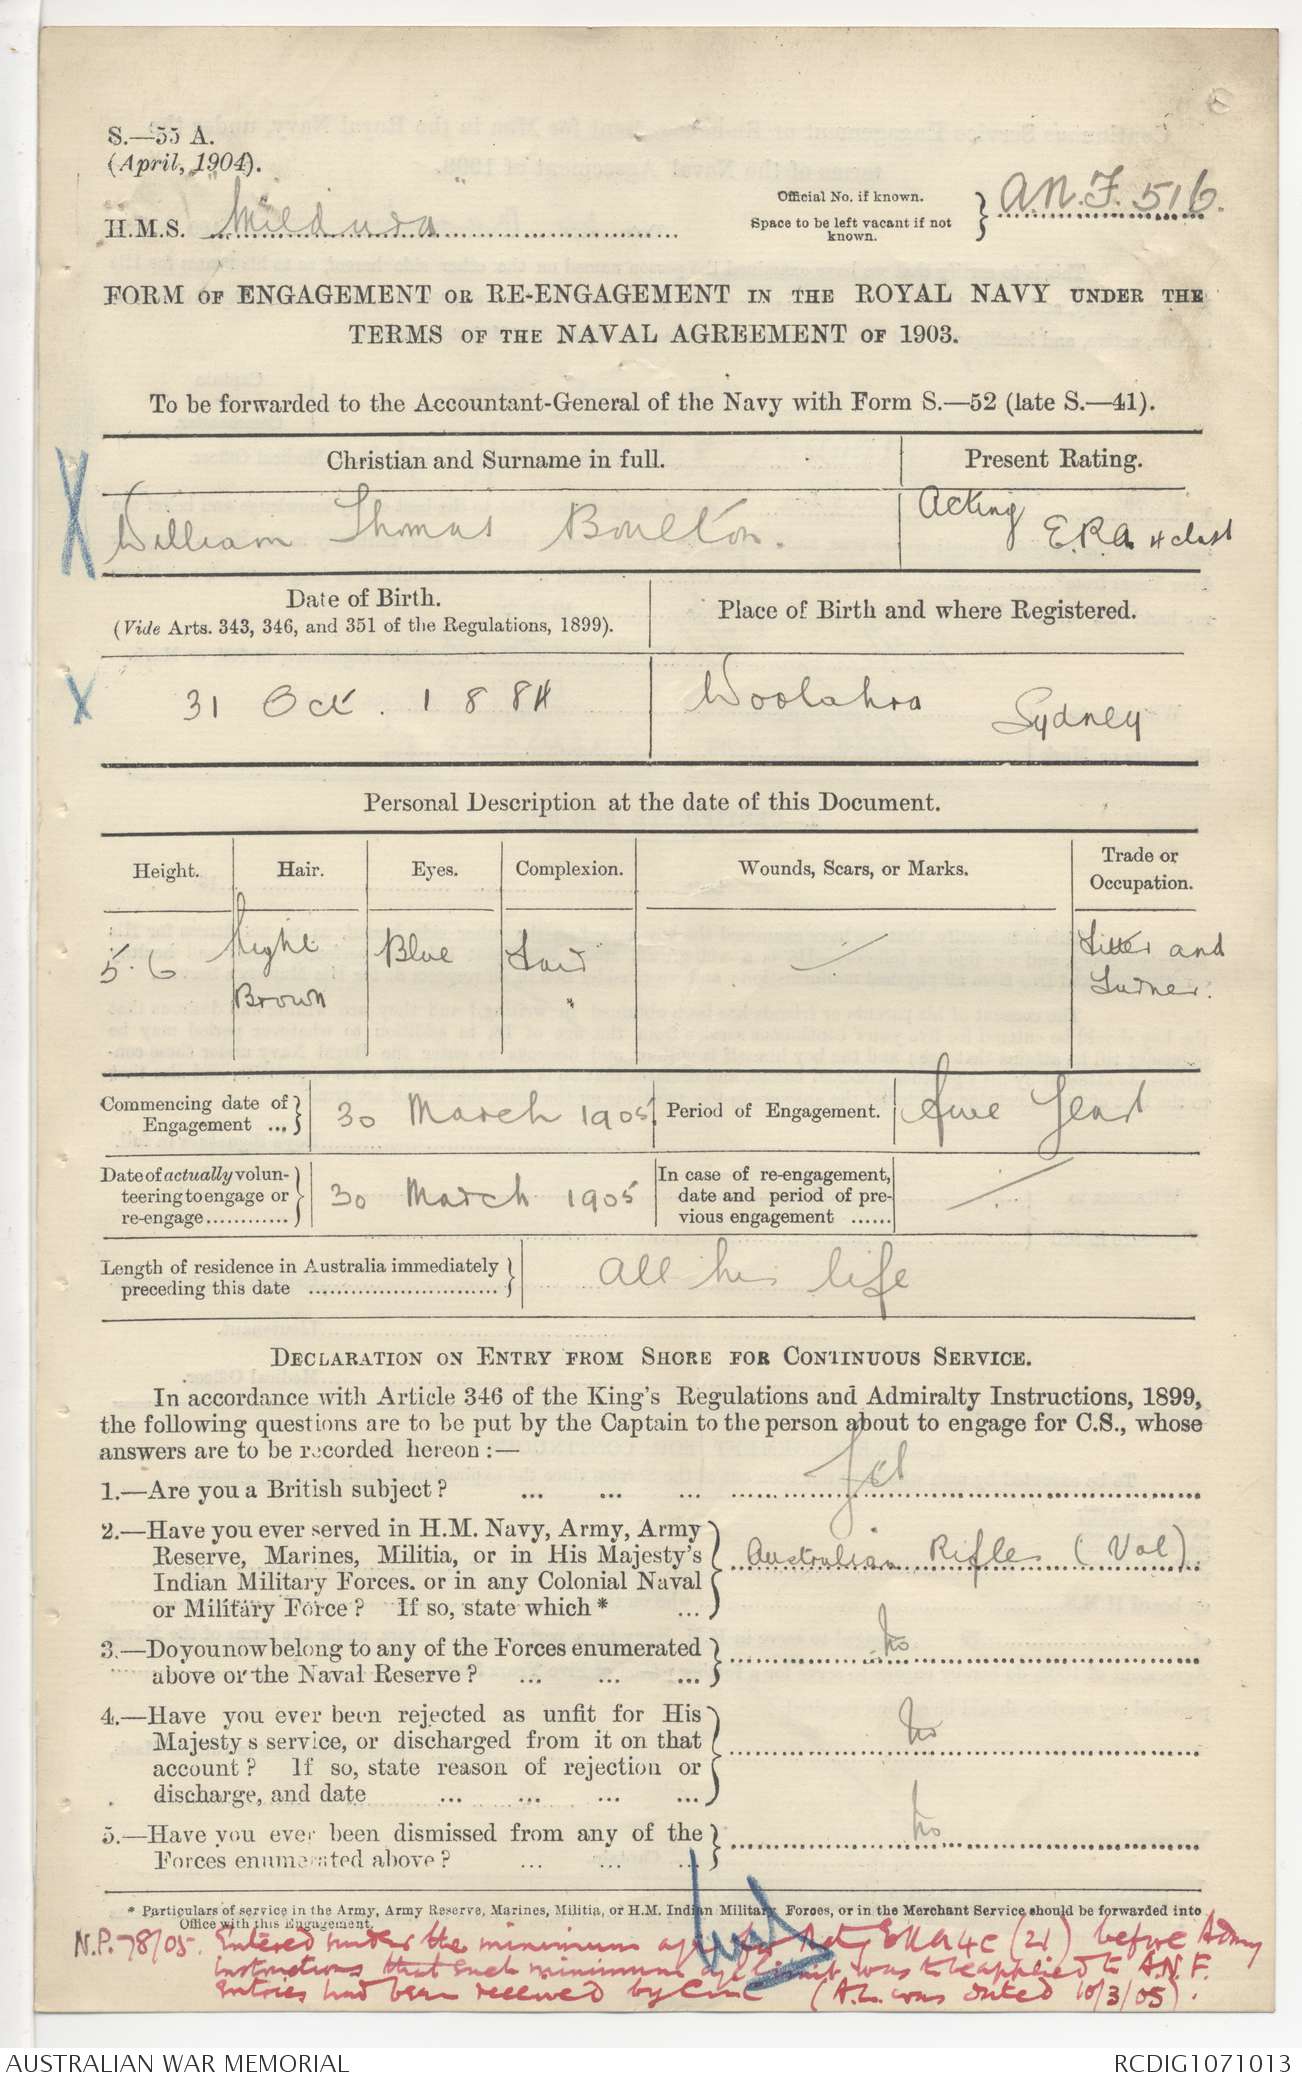 S.—55 A.
(April, 1904).
H.M.S. "Mildura"
Official No. if known.
Space to be left vacant if not
known.
A.N.F. 516.
FORM OF ENGAGEMENT OR RE-ENGAGEMENT IN THE ROYAL NAVY UNDER THE
TERMS OF THE NAVAL AGREEMENT OF 1903.
To be forwarded to the Accountant-General of the Navy with Form S.—52 (late S.—41).
X
Christian and Surname in full.
Present Rating.
William Thomas Boulton.
Acting
E.R.A. 4 class
Date of Birth.
(Vide Arts. 343, 346, and 351 of the Regulations, 1899).
Place of Birth and where Registered.
X
31 Oct. 1884
Woolahra
Sydney
Personal Description at the date of this Document.
Height.
Hair.
Eyes.
Complexion.
Wounds, Scars, or Marks.
Trade or
Occupation.
5.6
Light
Brown
Blue
Fair
Fitter and
Turner.
Commencing date of
Engagement ...
30 March 1905
Period of Engagement.
Five Years
Date of actually volun-
teering to engage or
re-engage............
30 March 1905
In case of re-engagement,
date and period of pre-
vious engagement ......
Length of residence in Australia immediately
preceding this date ............................
All his life
DECLARATION ON ENTRY FROM SHORE FOR CONTINUOUS SERVICE.
In accordance with Article 346 of the King's Regulations and Admiralty Instructions, 1899,
the following questions are to be put by the Captain to the person about to engage for C.S., whose
answers are to be recorded hereon :—
1.—Are you a British subject ? ... ... ... Yes
2.—Have you ever served in H.M. Navy, Army, Army
Reserve, Marines, Militia, or in His Majesty's
Indian Military Forces. or in any Colonial Naval
or Military Force ? If so, state which * ...
Australian Rifles (Vol)
3.—Do you now belong to any of the Forces enumerated
above or the Naval Reserve ? ... ... ...
No
4.—Have you ever been rejected as unfit for His
Majesty s service, or discharged from it on that
account ? If so, state reason of rejection or
discharge, and date ... ... ... ...
No
5.—Have you ever been dismissed from any of the
Forces enumerated above ? ... ... ...
No
* Particulars of service in the Army, Army Reserve, Marines, Militia, or H.M. Indian Military Forces, or in the Merchant Service should be forwarded into
Office with this Engagement.
N.P. 78/05. Entered under the minimum age for Actg ERA 4c (21) before Admy
instructions that such minimum age limit was to be applied to A.N.F.
entries had been received by CinC (A.L. was dated 10/3/05).
AUSTRALIAN WAR MEMORIAL
RCDIG1071013